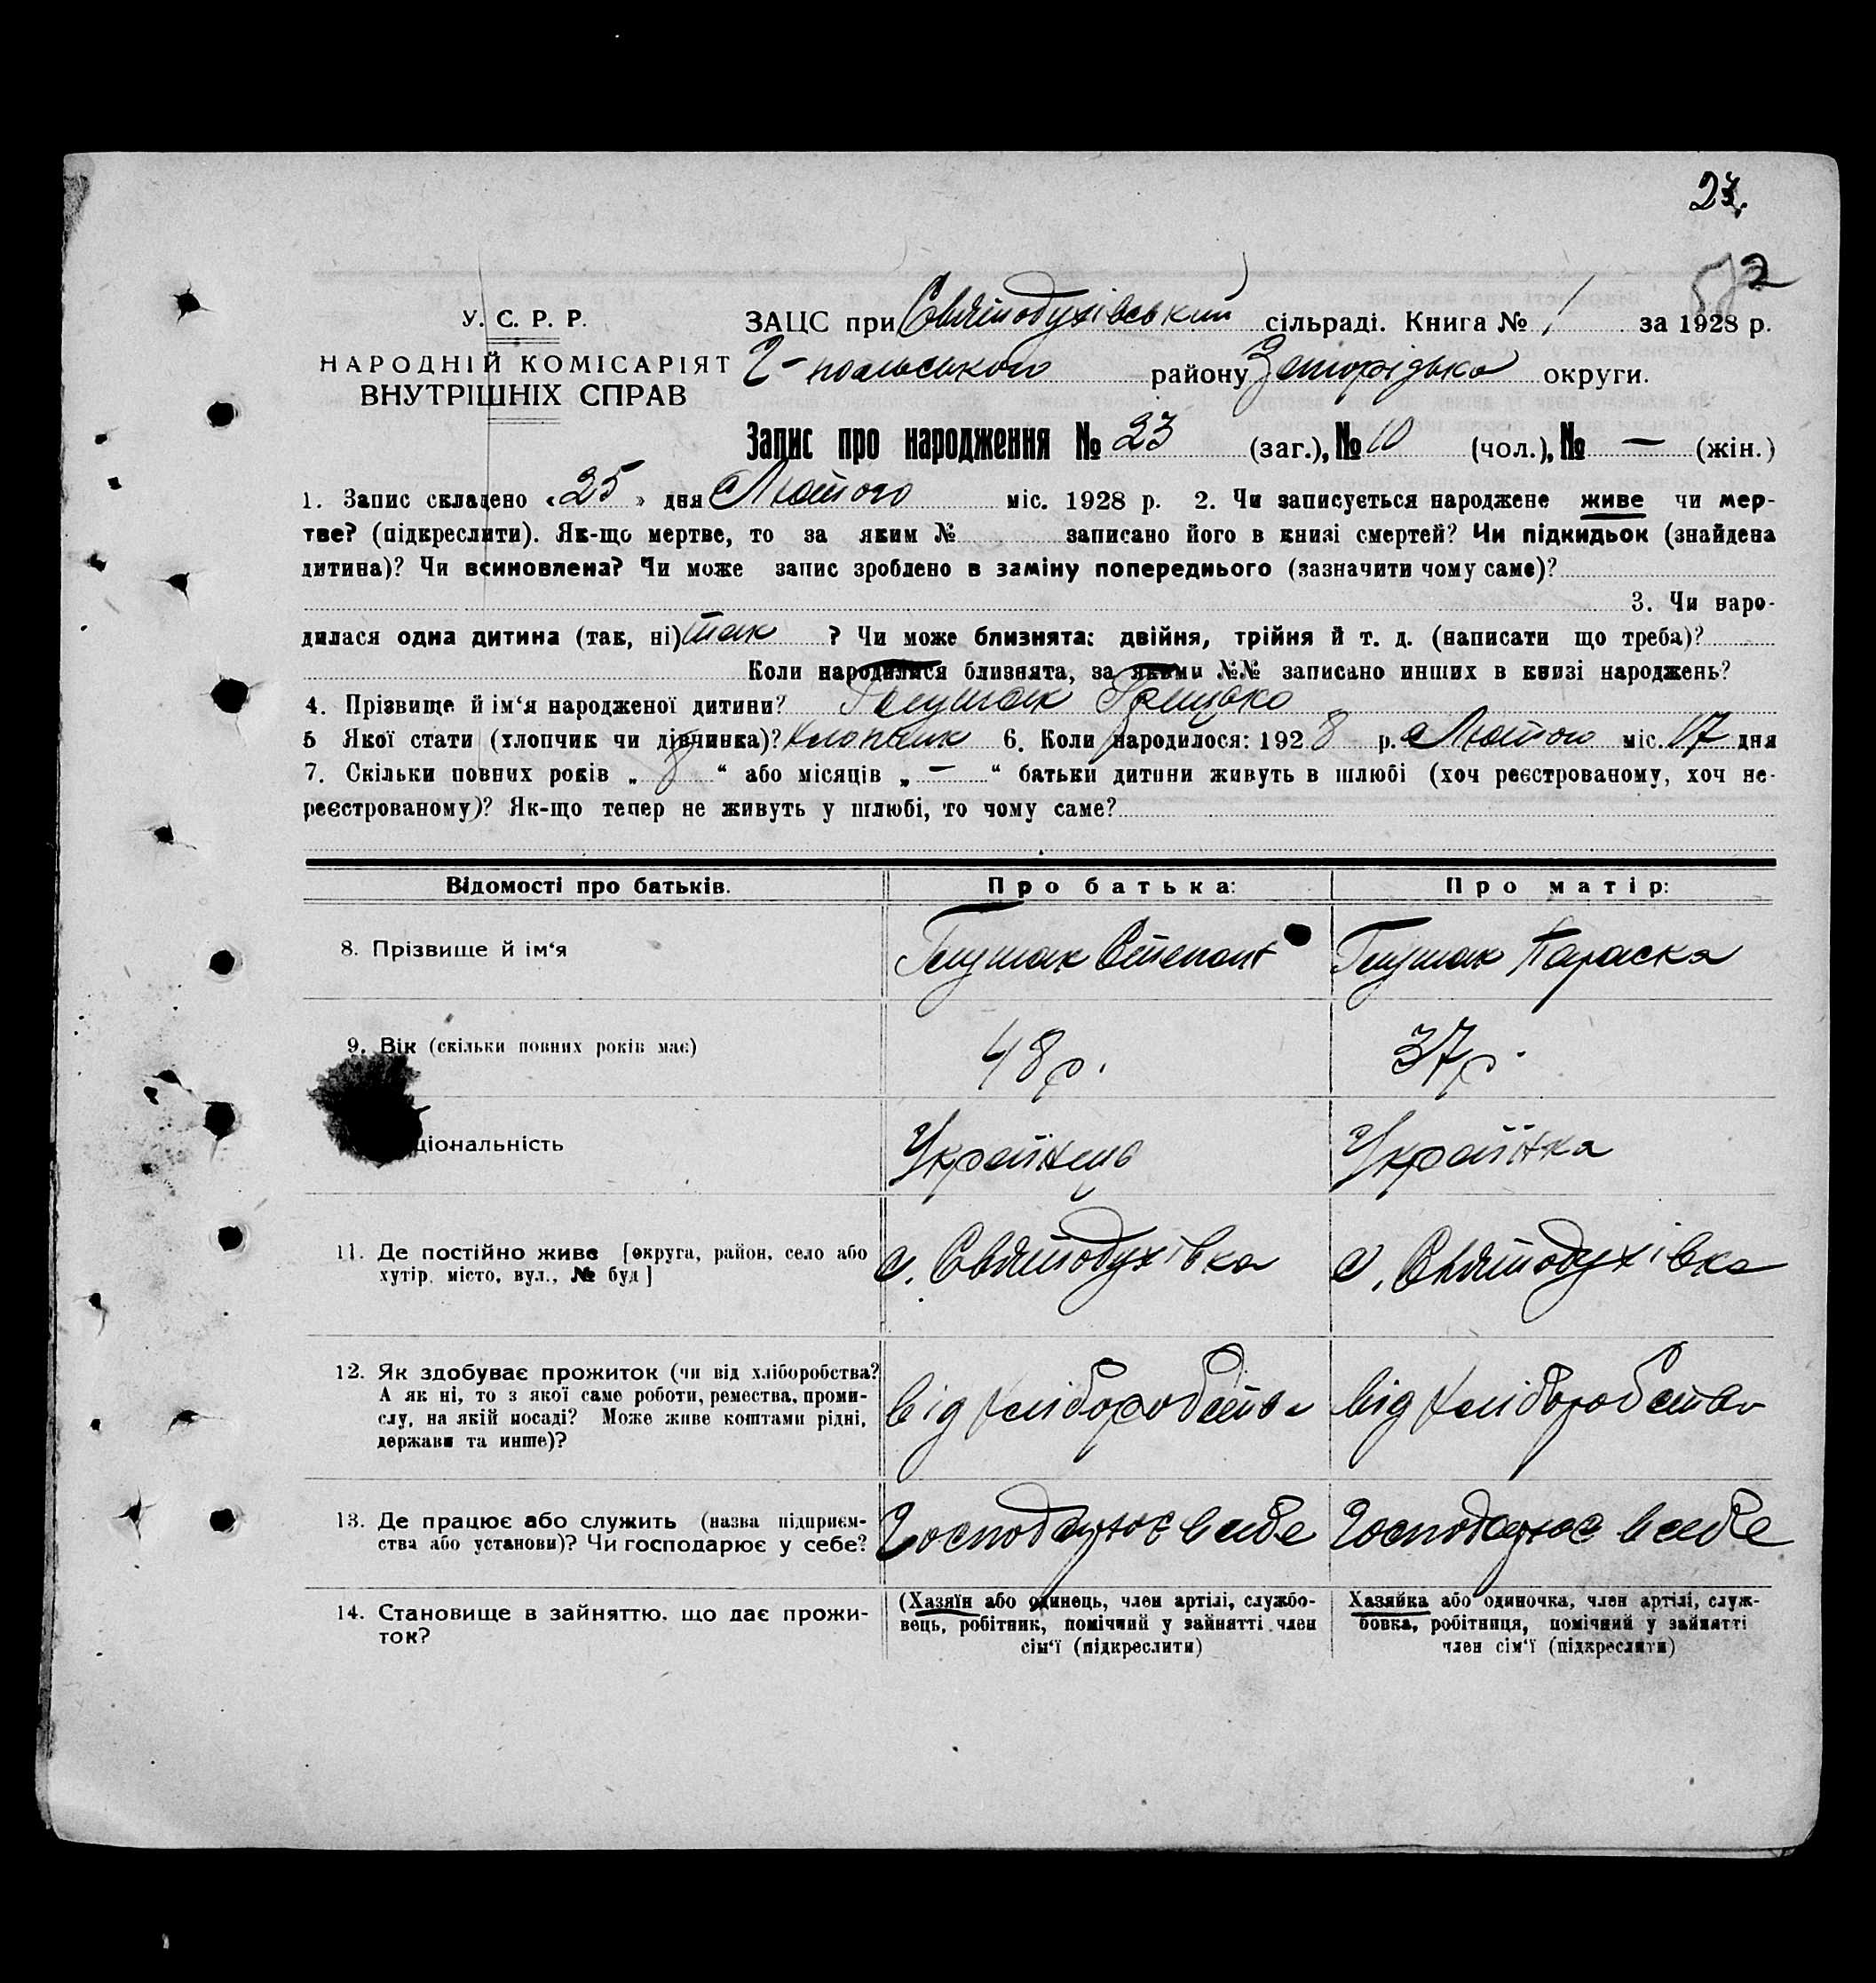 23.
582
У. С. Р. Р.
НАРОДНІЙ КОМІСАРІЯТ
ВНУТРІШНІХ СПРАВ
ЗАЦС при Святодухівський сільраді. Книга № 1 за 1928 р.
Г-польського району Запорізька округи.
Запис про народження № 23 (заг.), № 10 (чол.), № — (жін.)
1. Запис складено «25» дня Лютого міс. 1928 р. 2. Чи записується народжене живе чи мер-
тве? (підкреслити). Як-що мертве, то за яким № записано його в книзі смертей? Чи підкидьок (знайдена
дитина)? Чи всиновлена? Чи може запис зроблено в заміну попереднього (зазначити чому саме)?
3. Чи наро-
дилася одна дитина (так, ні) так ? Чи може близнята: двійня, трійня й т. д. (написати що треба)?
Коли народилися близнята, за якими №№ записано инших в книзі народжень?
4. Прізвище й ім‘я народженої дитини? Глушак Грицько
5 Якої стати (хлопчик чи дівчинка)? Хлопчик 6. Коли народилося: 1928 р. Лютого міс. 17 дня
7. Скільки повних років „ 8 “ або місяців „ — “ батьки дитини живуть в шлюбі (хоч реєстрованому, хоч не-
реєстрованому)? Як-що тепер не живуть у шлюбі, то чому саме?
Відомості про батьків.
Про батька:
Про матір:
8. Прізвище й ім‘я
Глушак Степан
Глушак Параска
9. Вік (скільки повних років має)
48 р.
37 р.
ціональність
Українець
Українка
11. Де постійно живе [округа, район, село або
хутір, місто, вул., № буд]
с. Святодухівка
с. Святодухівка
12. Як здобуває прожиток (чи від хліборобства?
А як ні, то з якої саме роботи, ремества, проми-
слу, на якій посаді? Може живе коштами рідні,
держави та инше)?
від хліборобства
від хліборобства
13. Де працює або служить (назва підприєм-
ства або установи)? Чи господарює у себе?
Господарює в себе
Господарює в себе
14. Становище в зайняттю, що дає прожи-
ток?
(Хазяїн або одинець, член артілі, службо-
вець, робітник, помічний у зайнятті член
сім‘ї (підкреслити)
Хазяйка або одиночка, член артілі, служ-
бовка, робітниця, помічний у зайнятті
член сім‘ї (підкреслити)